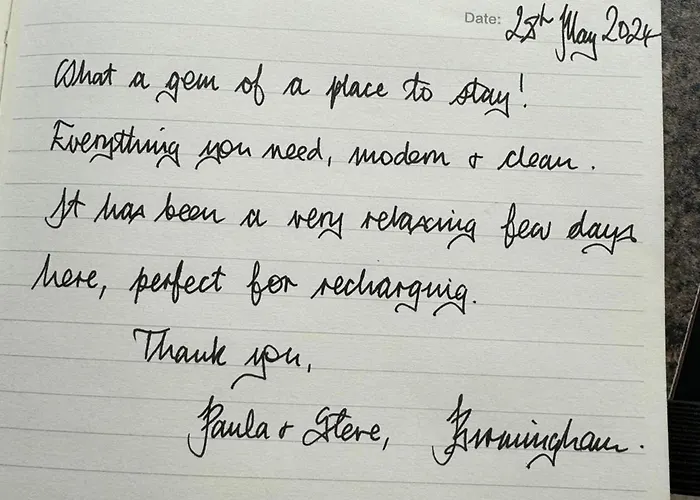 Date: 28th May 2024
What a gem of a place to stay!
Everything you need, modern & clean.
It has been a very relaxing few days
here, perfect for recharging.
Thank you,
Paula & Steve, Birmingham.